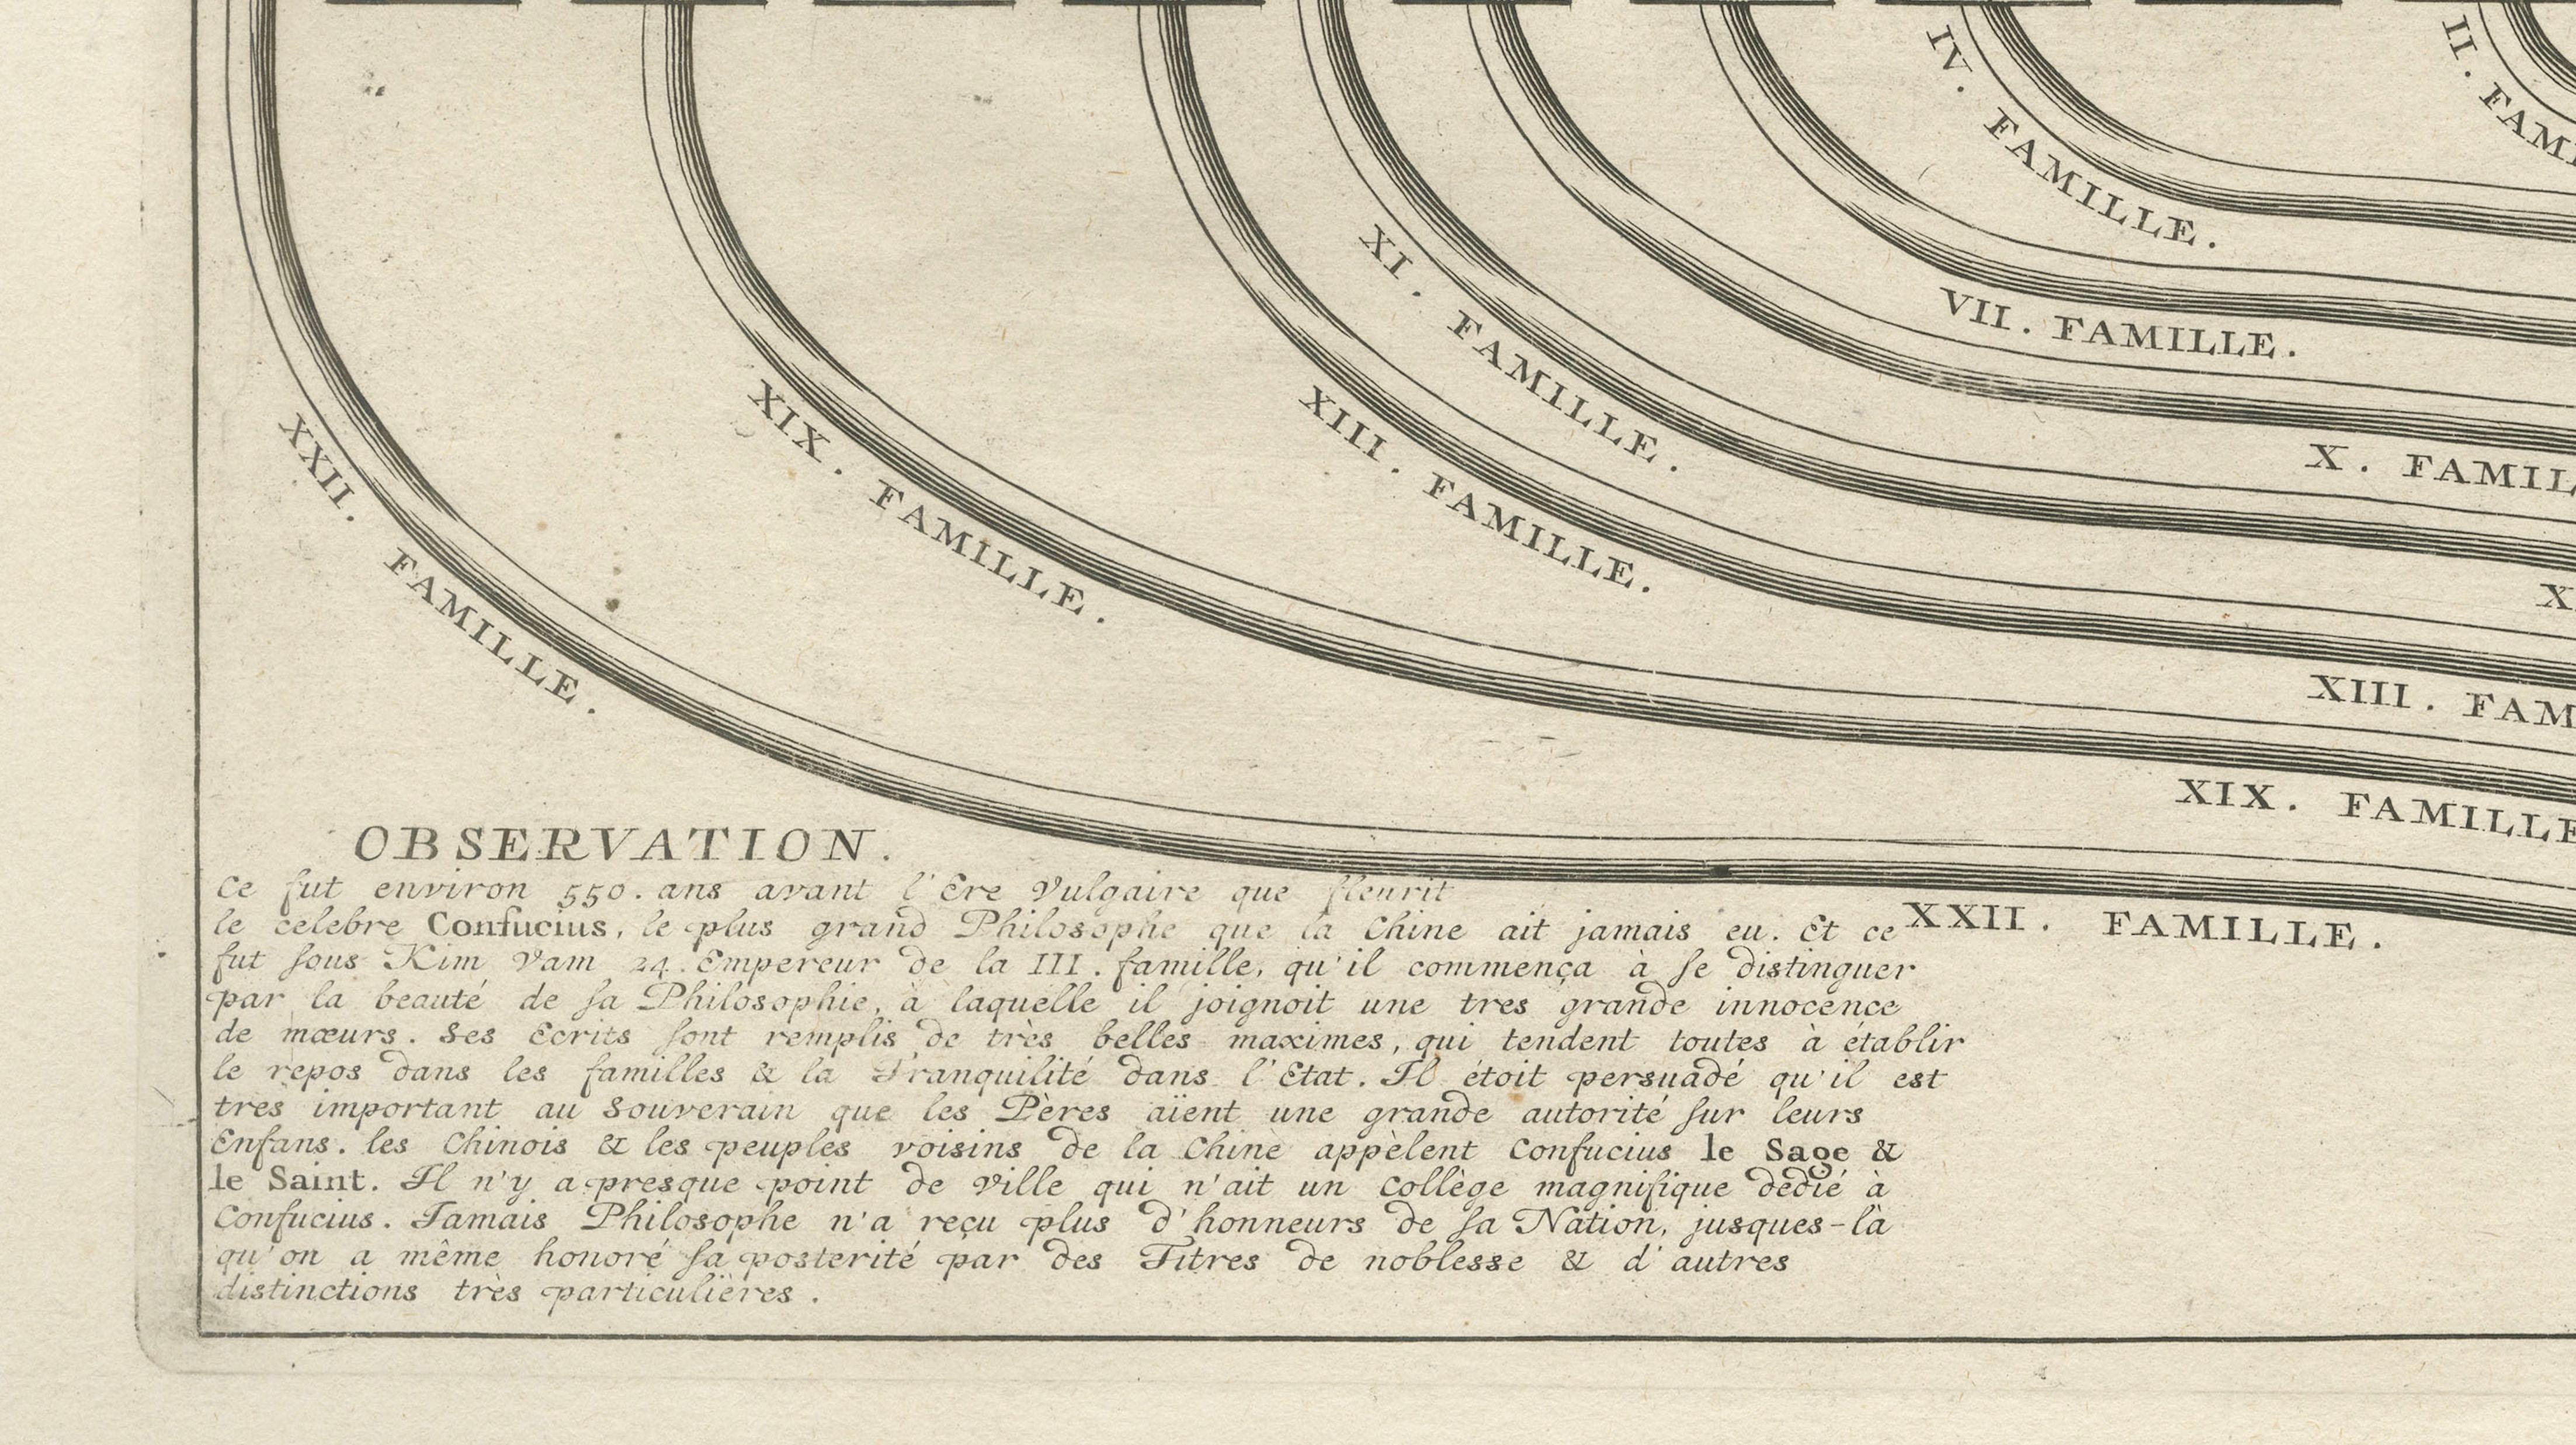 IV. FAMILLE.
II. FAMI
VII. FAMILLE.
XI. FAMILLE.
X. FAMIL
XIX. FAMILLE.
XIII. FAMILLE.
XXII. FAMILLE.
X
XIII. FAM
XIX. FAMILLE
XXII. FAMILLE.
OBSERVATION.
Ce fut environ 550. ans avant l'Ere Vulgaire que fleurit
le celebre Confucius, le plus grand Philosophe que la Chine ait jamais eu. Et ce
fut sous Kim Vam 24. Empereur de la III. famille, qu'il commença à se distinguer
par la beauté de sa Philosophie, à laquelle il joignoit une tres grande innocence
de mœurs. Ses Ecrits sont remplis de très belles maximes, qui tendent toutes à établir
le repos dans les familles & la Tranquilité dans l'Etat. Il étoit persuadé qu'il est
très important au Souverain que les Pères aïent une grande autorité sur leurs
Enfans. les Chinois & les peuples voisins de la Chine appèlent Confucius le Sage &
le Saint. Il n'y a presque point de ville qui n'ait un Collège magnifique dedié à
Confucius. Jamais Philosophe n'a reçu plus d'honneurs de sa Nation, jusques-là
qu'on a même honoré sa posterité par des Titres de noblesse & d'autres
distinctions très particulières.